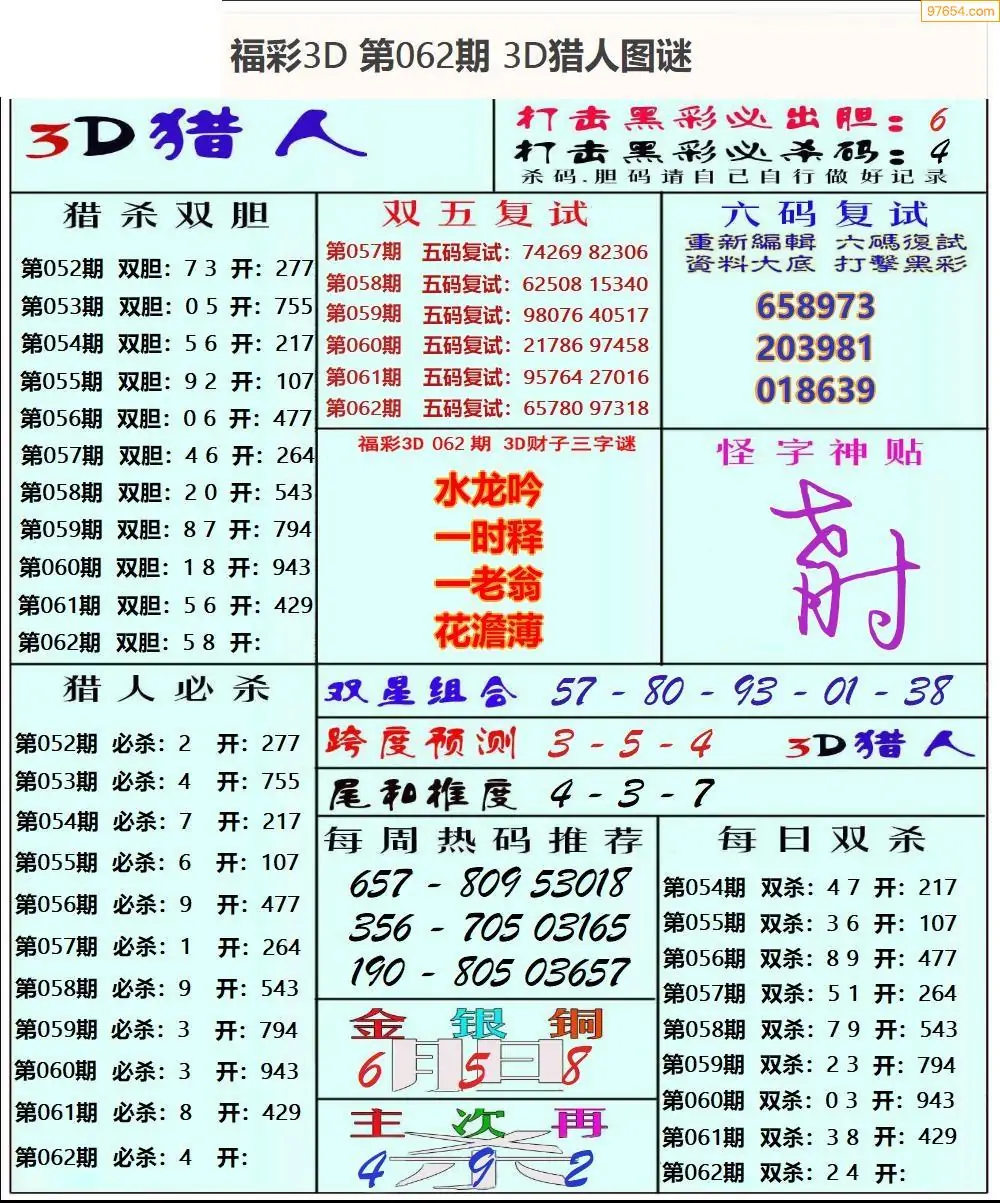 97654.com
福彩3D 第062期 3D猎人图谜
3D猎人
打击黑彩必出胆：6
打击黑彩必杀码：4
杀码.胆码请自己自行做好记录
猎杀双胆
第052期 双胆：7 3 开：277
第053期 双胆：0 5 开：755
第054期 双胆：5 6 开：217
第055期 双胆：9 2 开：107
第056期 双胆：0 6 开：477
第057期 双胆：4 6 开：264
第058期 双胆：2 0 开：543
第059期 双胆：8 7 开：794
第060期 双胆：1 8 开：943
第061期 双胆：5 6 开：429
第062期 双胆：5 8 开：
双五复试
第057期 五码复试：74269 82306
第058期 五码复试：62508 15340
第059期 五码复试：98076 40517
第060期 五码复试：21786 97458
第061期 五码复试：95764 27016
第062期 五码复试：65780 97318
六码复试
重新編輯 六碼復試
資料大底 打擊黑彩
658973
203981
018639
福彩3D 062 期 3D财子三字谜
水龙吟
一时释
一老翁
花澹薄
怪字神贴
猎人必杀
第052期 必杀：2 开：277
第053期 必杀：4 开：755
第054期 必杀：7 开：217
第055期 必杀：6 开：107
第056期 必杀：9 开：477
第057期 必杀：1 开：264
第058期 必杀：9 开：543
第059期 必杀：3 开：794
第060期 必杀：3 开：943
第061期 必杀：8 开：429
第062期 必杀：4 开：
双星组合 57 - 80 - 93 - 01 - 38
跨度预测 3 - 5 - 4 3D猎人
尾和推度 4 - 3 - 7
每周热码推荐
657 - 809 53018
356 - 705 03165
190 - 805 03657
金银铜
胆
6 5 8
主次再
杀
4 9 2
每日双杀
第054期 双杀：4 7 开：217
第055期 双杀：3 6 开：107
第056期 双杀：8 9 开：477
第057期 双杀：5 1 开：264
第058期 双杀：7 9 开：543
第059期 双杀：2 3 开：794
第060期 双杀：0 3 开：943
第061期 双杀：3 8 开：429
第062期 双杀：2 4 开：